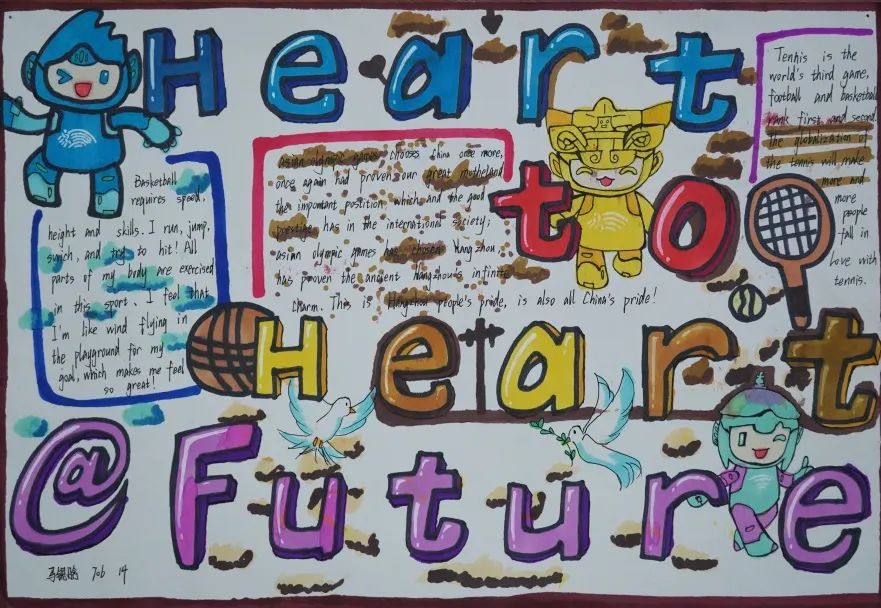 Heart
to
Heart
@Future
Basketball
requires speed,
height and skills. I run, jump,
swich, and try to hit! All
parts of my body are exercised
in this sport. I feel that
I'm like wind flying in
the playground for my
goal, which makes me feel
so great!
Asian olympic games chooses China once more,
once again had proven our great motheland
the important position which and the good
prestige has in the international society;
asian olympic games has chosen Hang zhou,
has proven the ancient Hangzhou's infinite
charm. This is Hangzhou people's pride, is also all China's pride!
Tennis is the
world's third game,
football and basketball
rank first and second.
the globalization of
the tennis will make
more and
more
people
fall in
love with
tennis.
706 14